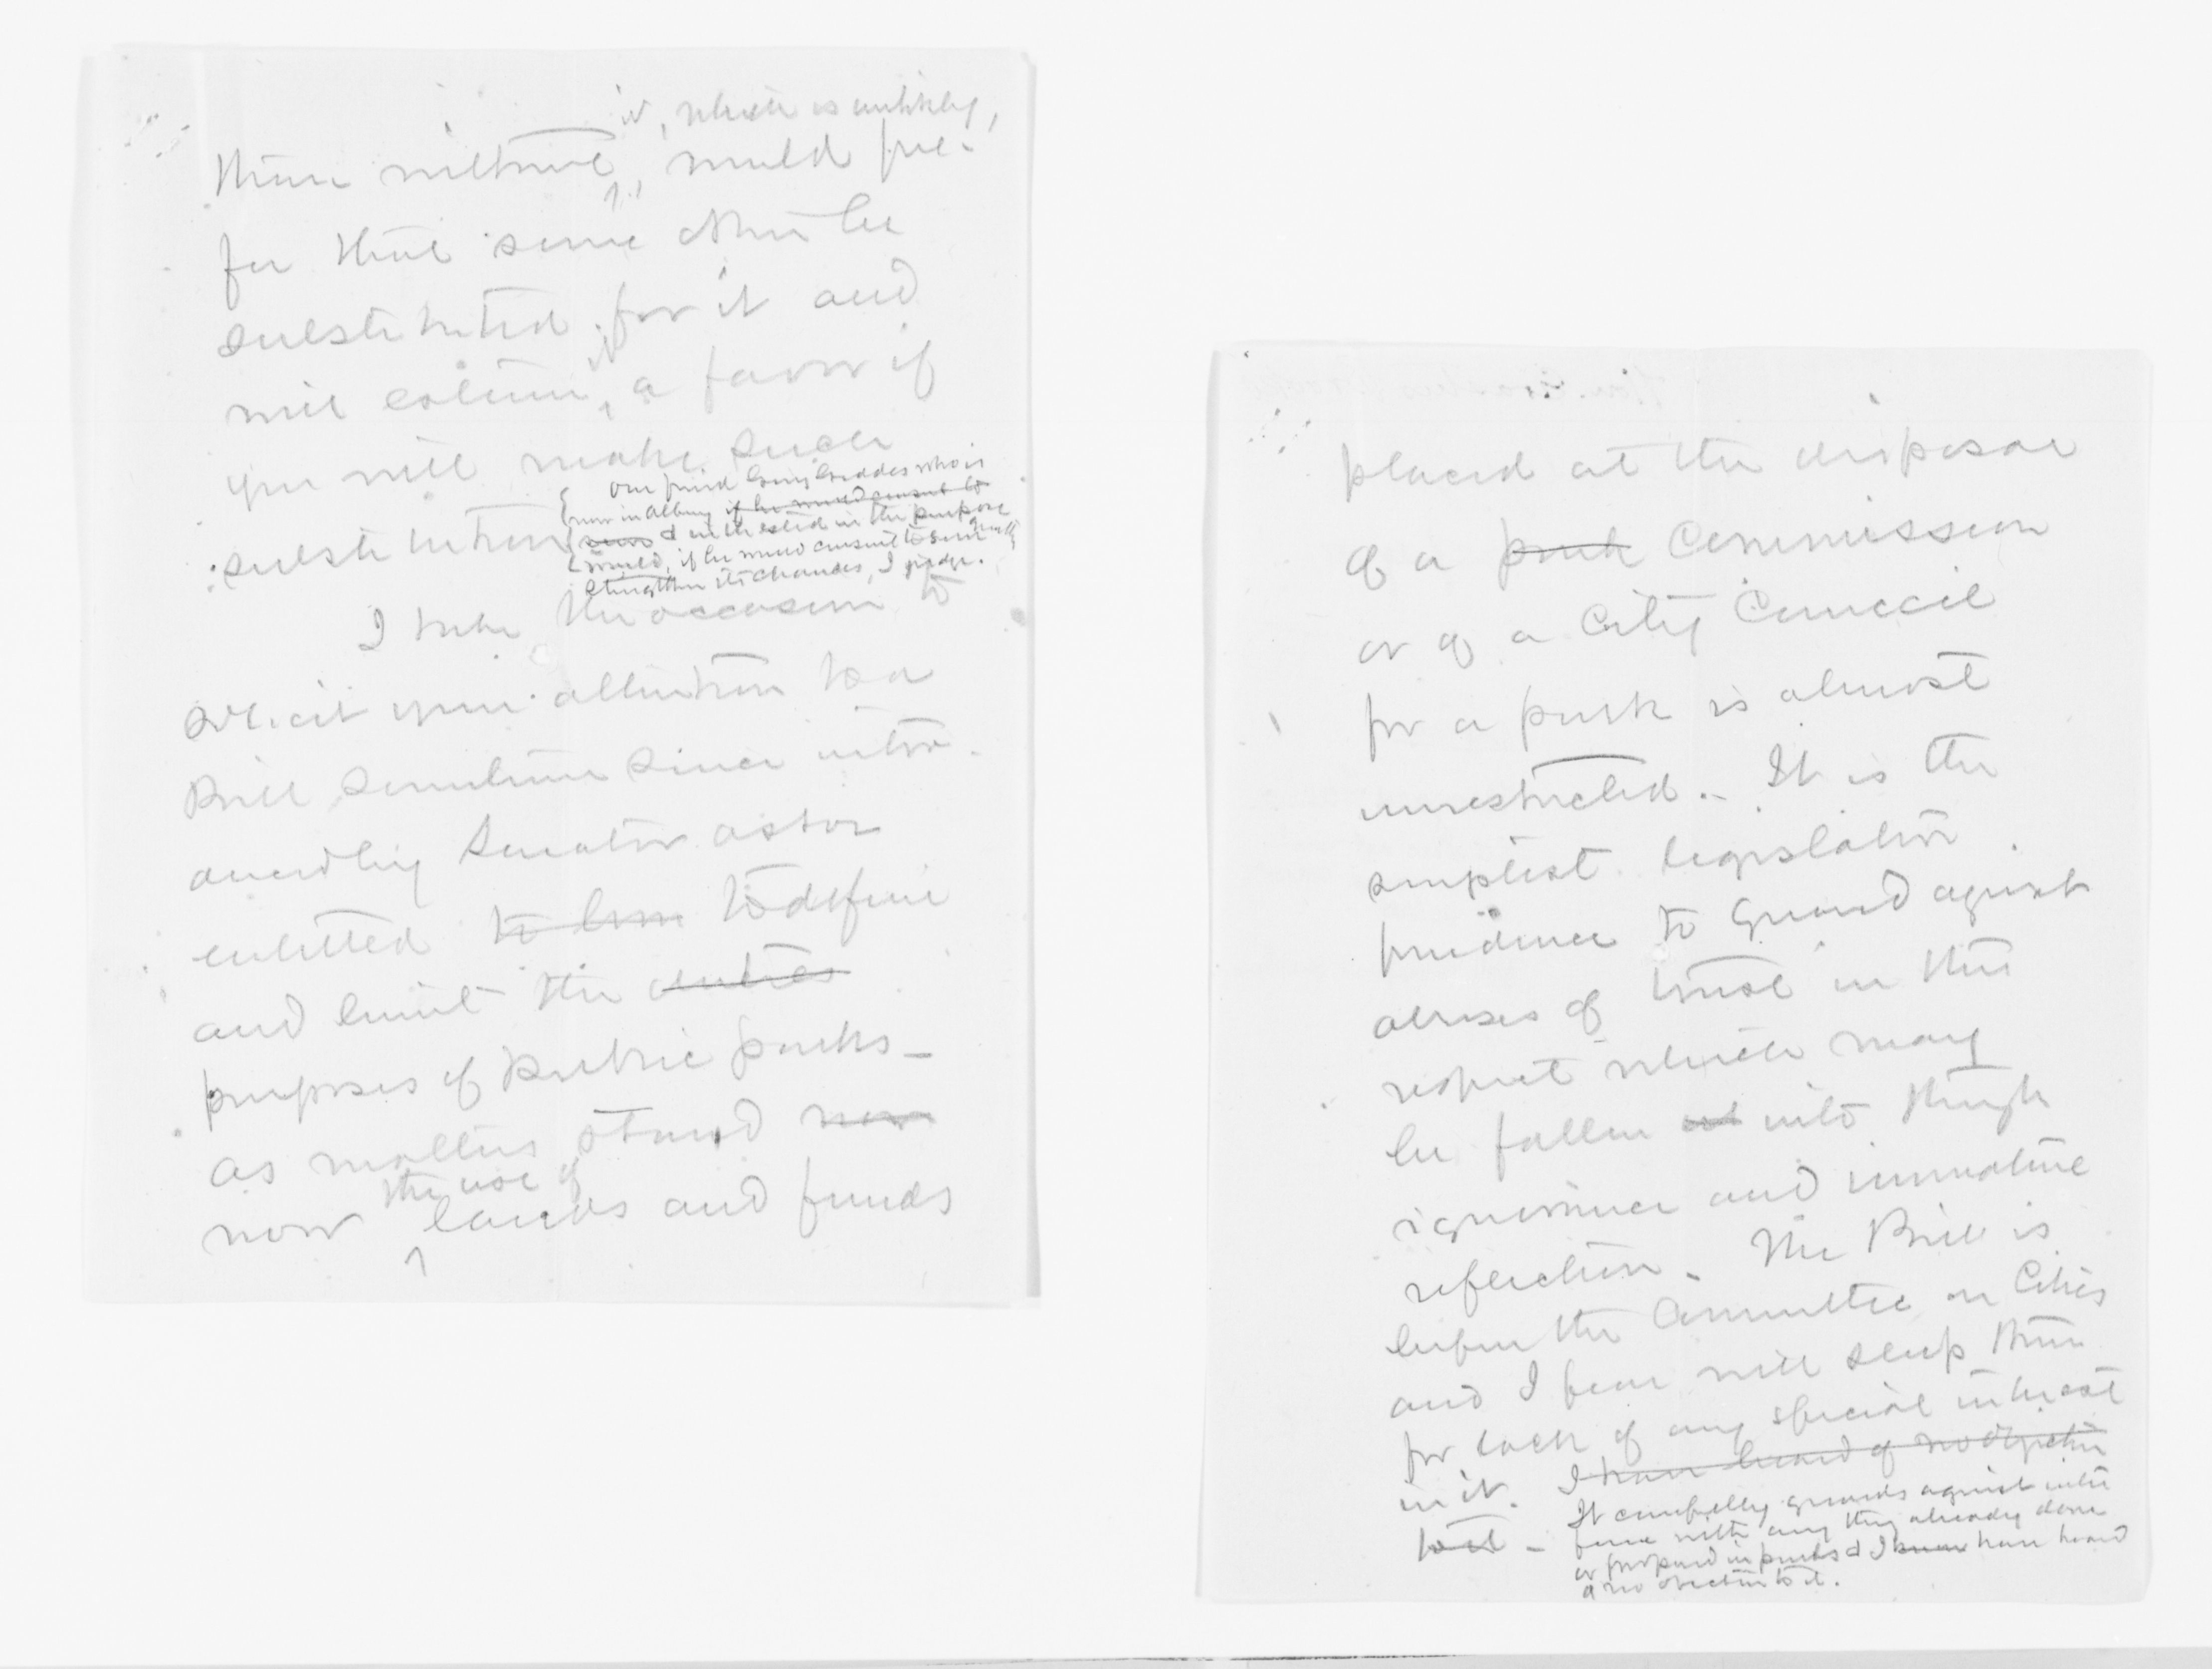 it, which is unlikely,
than without, would pre-
fer that some other be
substituted for it and
will esteem it a favor if
you will make such
substitution
our friend Geddes who is
now in Albany if he would consent to
& interested in the purpose
would, if he would consent to serve greatly
strengthen its chances, I judge.
I take the occasion to
solicit your attention to a
Bill sometime since intro-
duced by Senator Astor
entitled to him to define
and limit the duties
purposes of public parks -
as matters stand now
the use of
now lands and funds
placed at the disposal
of a park Commission
or of a City Council
for a park is almost
unrestricted. - It is the
simplest legislative
prudence to guard against
abuses of trust in this
respect which may
be fallen into through
ignorance and immature
reflection. The Bill is
before the Committee on Cities
and I fear will sleep there
for lack of any special interest
in it. I have heard of no objection
to it -
It carefully guards against inter
ference with any thing already done
or proposed in parks & I know have heard
of no objection to it.